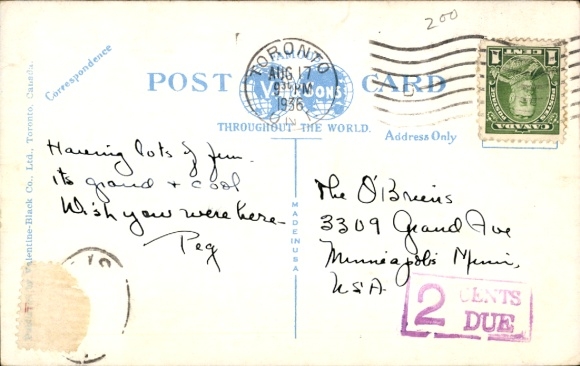 200
Correspondence
POST CARD
FAMOUS
THROUGHOUT THE WORLD.
Address Only
TORONTO
AUG 17
PM
1936
ONT
CENT
CANADA
Having lots of fun.
its grand & cool
Wish you were here
Peg
The O'Briens
3309 Grand Ave
Minneapolis Minn,
USA.
2 CENTS
DUE
MADE IN USA
Valentine-Black Co., Ltd., Toronto, Canada.